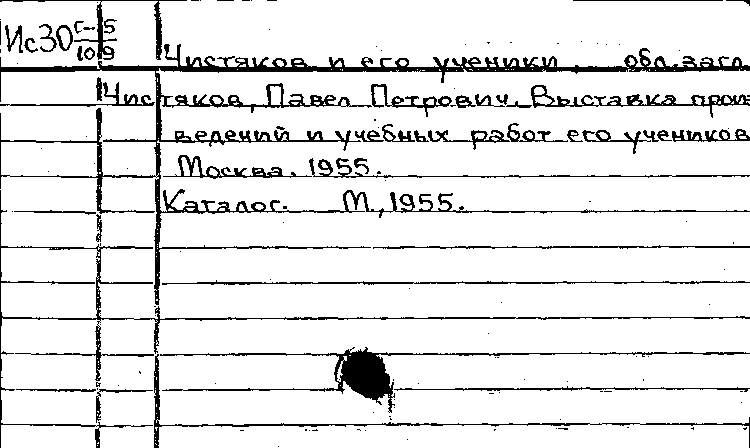 Ис30 С-5
10 9
Чистяков и его ученики. обл.загл.
Чистяков, Павел Петрович. Выставка произ
ведений и учебных работ его учеников
Москва. 1955.
Каталог. М., 1955.